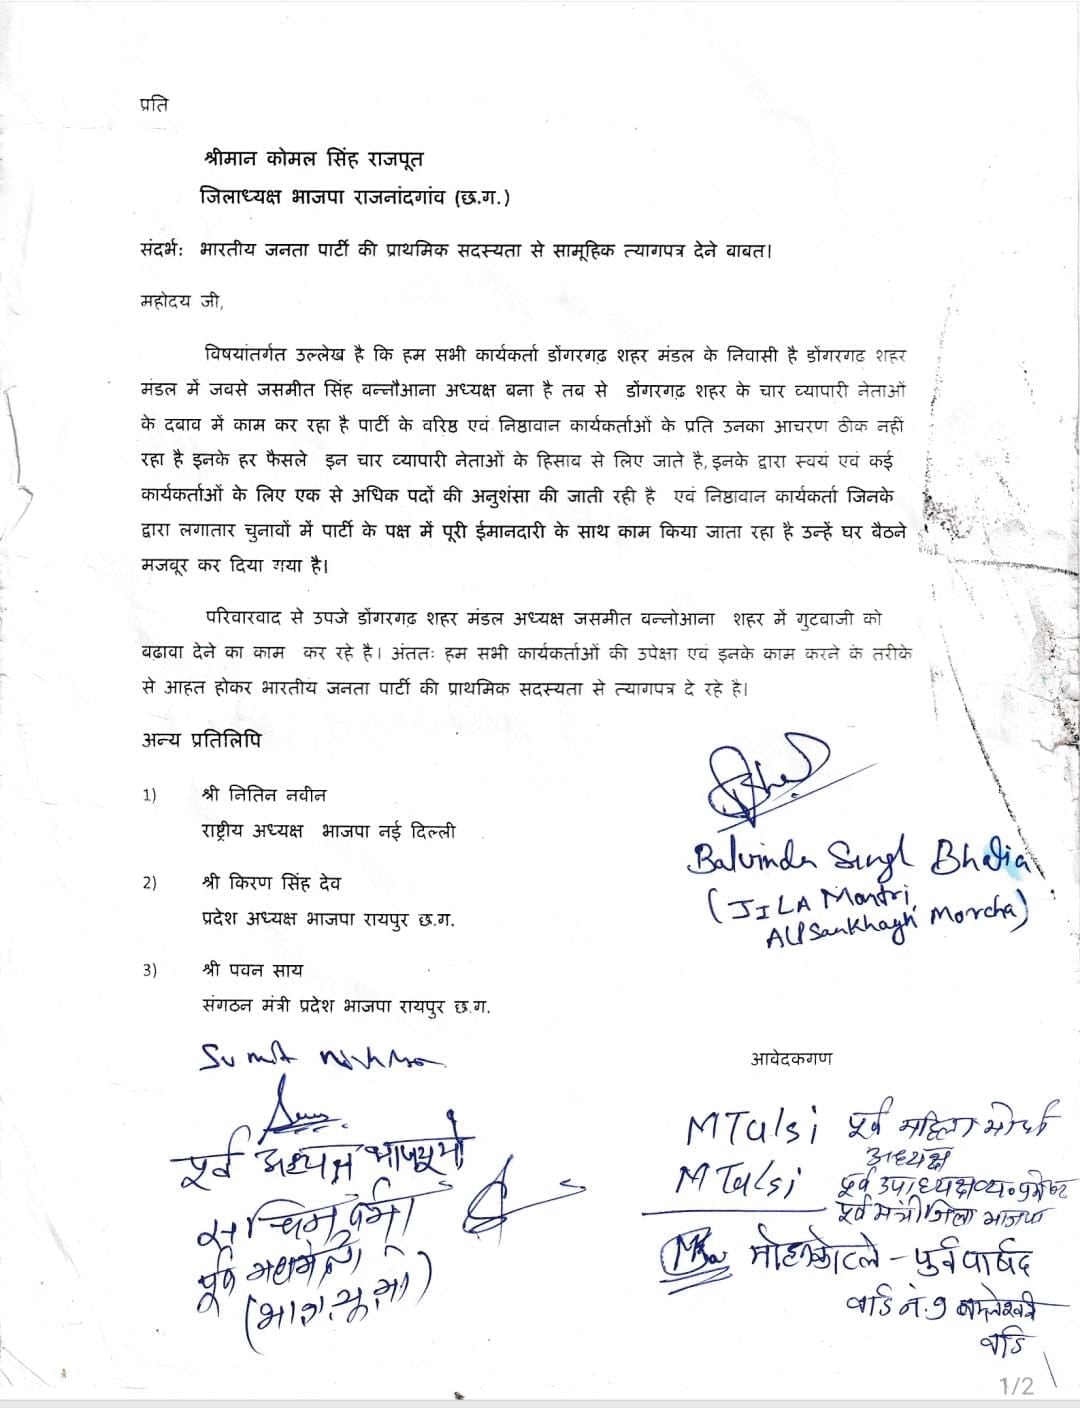 प्रति
श्रीमान कोमल सिंह राजपूत
जिलाध्यक्ष भाजपा राजनांदगांव (छ.ग.)
संदर्भ: भारतीय जनता पार्टी की प्राथमिक सदस्यता से सामूहिक त्यागपत्र देने बाबत।
महोदय जी,
विषयांतर्गत उल्लेख है कि हम सभी कार्यकर्ता डोंगरगढ़ शहर मंडल के निवासी है डोंगरगढ़ शहर
मंडल में जबसे जसमीत सिंह वन्नौआना अध्यक्ष बना है तव से डोंगरगढ़ शहर के चार व्यापारी नेताओं
के दबाव में काम कर रहा है पार्टी के वरिष्ठ एवं निष्ठावान कार्यकर्ताओं के प्रति उनका आचरण ठीक नहीं
रहा है इनके हर फैसले इन चार व्यापारी नेताओं के हिसाब से लिए जाते है, इनके द्वारा स्वयं एवं कई
कार्यकर्ताओं के लिए एक से अधिक पदों की अनुशंसा की जाती रही है एवं निष्ठावान कार्यकर्ता जिनके
द्वारा लगातार चुनावों में पार्टी के पक्ष में पूरी ईमानदारी के साथ काम किया जाता रहा है उन्हें घर बैठने
मजबूर कर दिया गया है।
परिवारवाद से उपजे डोंगरगढ़ शहर मंडल अध्यक्ष जसमीत वन्नोआना शहर में गुटबाजी को
बढ़ावा देने का काम कर रहे है। अंततः हम सभी कार्यकर्ताओं की उपेक्षा एवं इनके काम करने के तरीके
से आहत होकर भारतीय जनता पार्टी की प्राथमिक सदस्यता से त्यागपत्र दे रहे है।
अन्य प्रतिलिपि
1) श्री नितिन नवीन
राष्ट्रीय अध्यक्ष भाजपा नई दिल्ली
Balvinder Singh Bhatia
(JILA Mantri,
Alpsankhagh Morcha)
2) श्री किरण सिंह देव
प्रदेश अध्यक्ष भाजपा रायपुर छ.ग.
3) श्री पवन साय
संगठन मंत्री प्रदेश भाजपा रायपुर छ.ग.
Sumit
आवेदकगण
पूर्व अध्यक्ष भाजयूमो
MTulsi पूर्व महिला मोर्चा
अध्यक्ष
MTulsi पूर्व उपाध्यक्ष
पूर्व मंत्री जिला भाजपा
पूर्व महामंत्री
(भा.ज.यू.मो)
मोहन कोटले - पुर्व पार्षद
वार्ड नं. 9
वार्ड
1/2